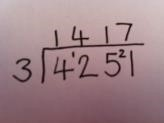 1417
3)4¹25²1